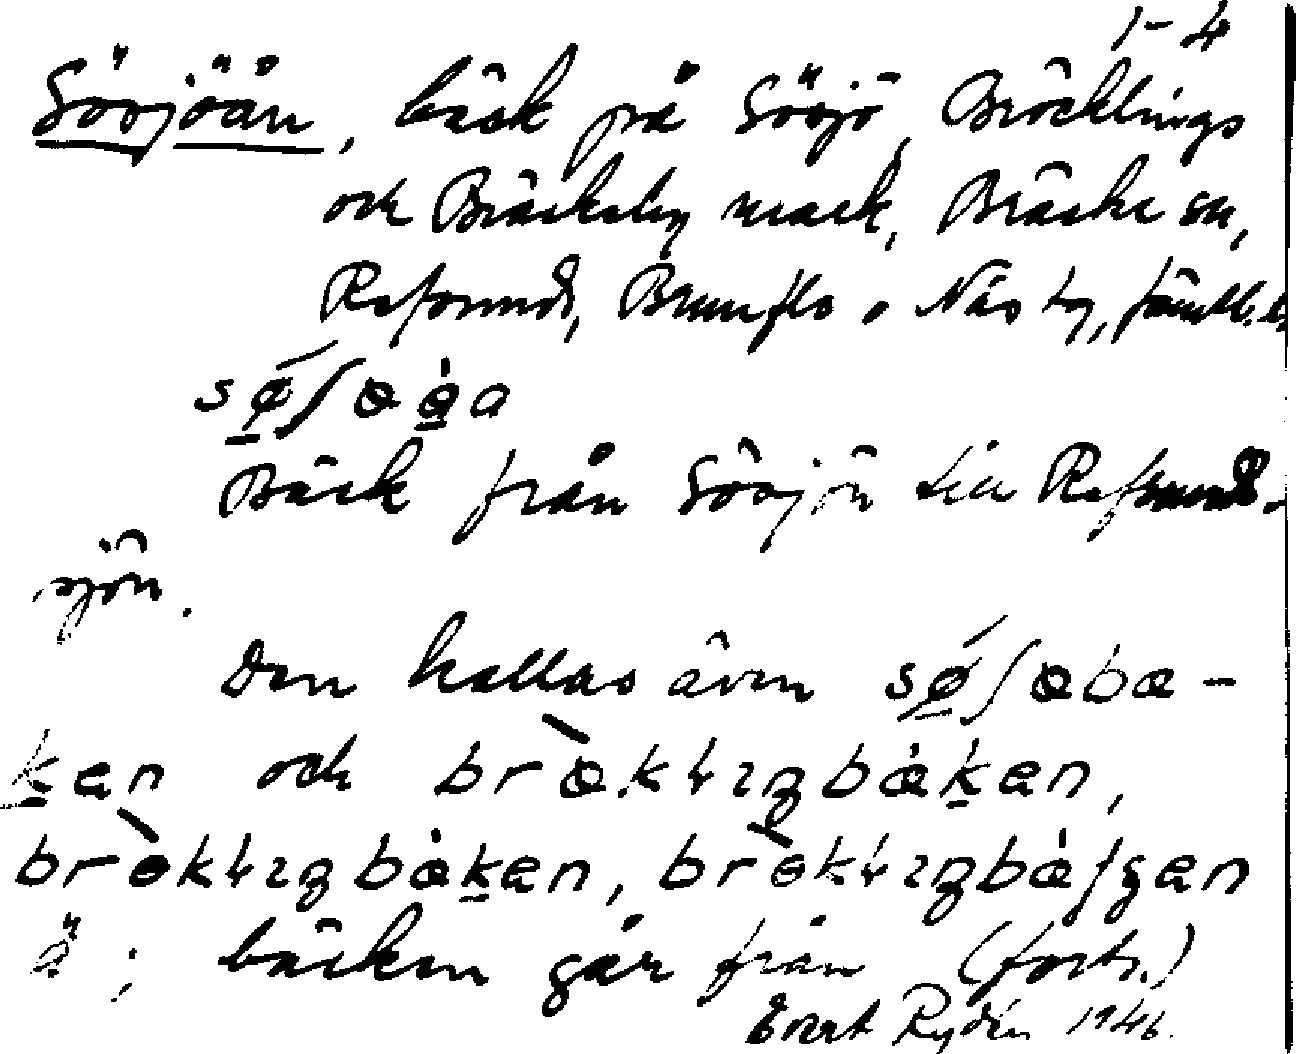 1-4
Sösjöån, bäck på Sösjö, Bröcklings
och Bräcksby mark, Bräcke sn,
Refsunds, Brunflo o. Näs tg, Jämtl. l.
sø̱ʃɵa
Bäck från Sösjön till Refsunds-
sjön.
Den kallas även sø̱ʃɵbæ-
ḵən och brɵ̀klɪŋbæ̀ḵən,
brɵ̀klɪŋbæ̀ḵən, brɵ̀klɪŋbæ̀ʃən
ä; bäcken går från (forts.)
Evert Rydén 1946.